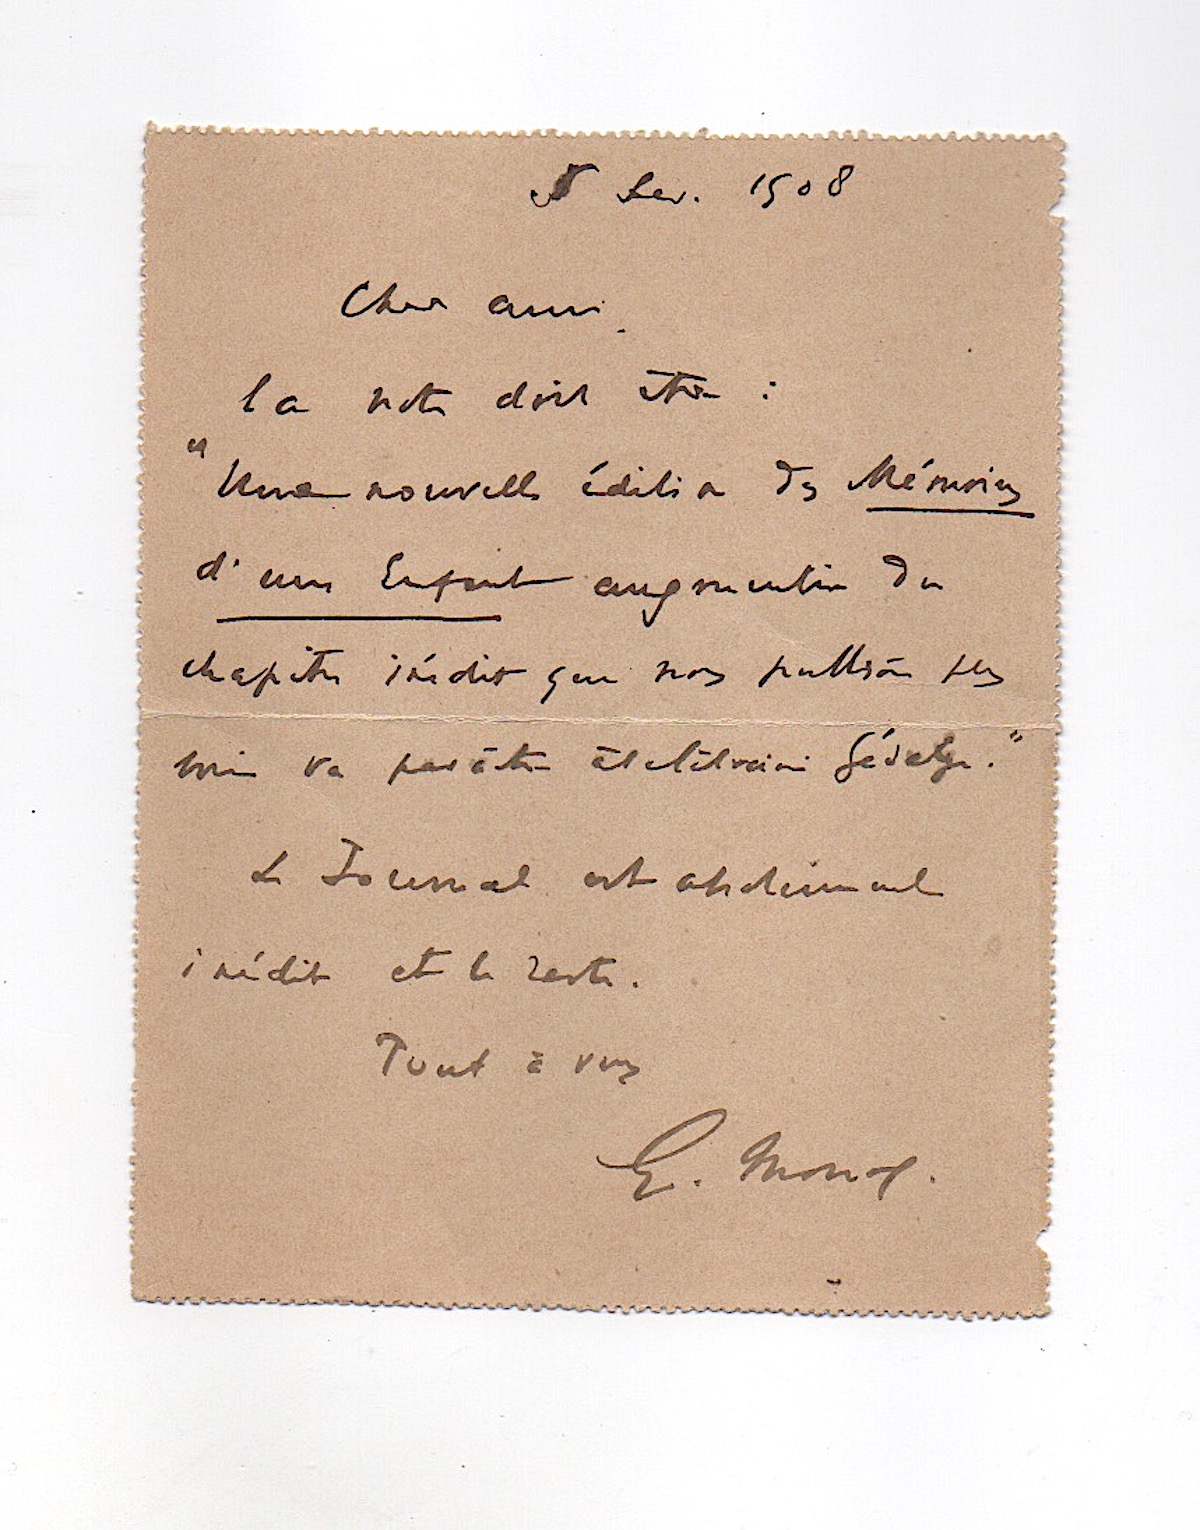 5 Fev. 1908
Cher ami.
La note doit être :
"Une nouvelle édition des Mémoires
d'une Enfant augmentée du
chapitre inédit que nous publions plus
loin va paraître à la librairie Gédalge."
Le Journal est absolument
inédit et le reste.
Tout à vous
G. Monod.